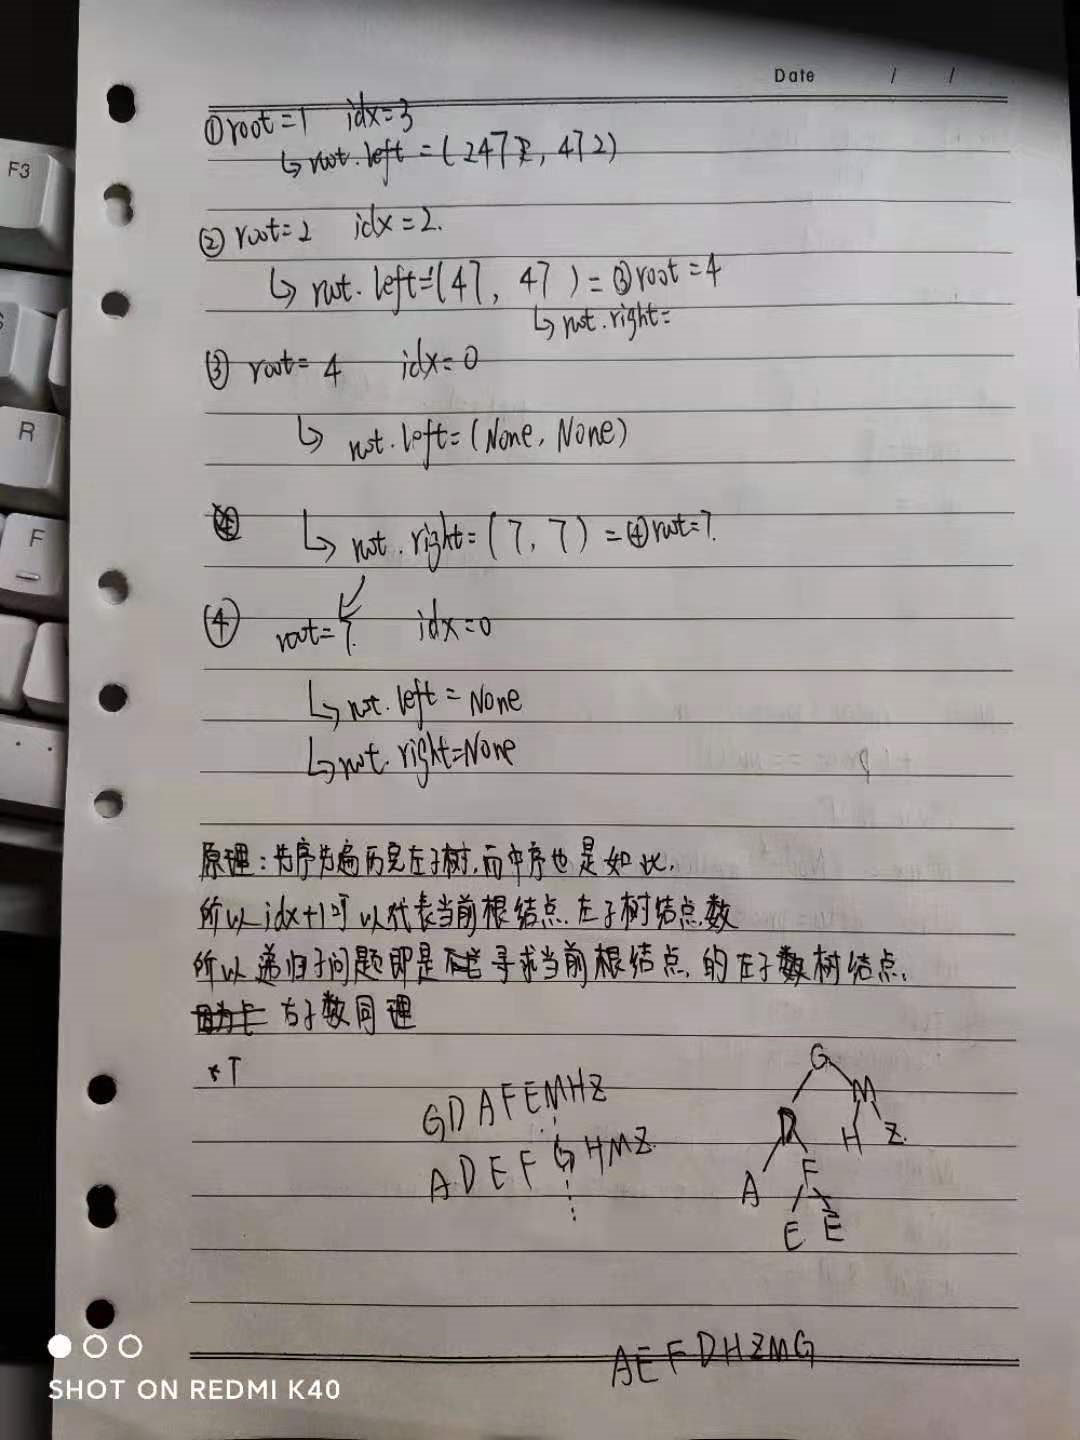 Date / /
①root=1 idx=3
↳root.left=(247, 472)
②root=2 idx=2.
↳root.left=(47, 47)=③root=4
↳root.right=
③ root=4 idx=0
↳ root.left=(None, None)
↳ root.right=(7, 7)=④root=7.
④ root=7. idx=0
↳root.left=None
↳root.right=None
原理:先序先遍历完左子树,而中序也是如此.
所以idx+1可以代表当前根结点.左子树结点数
所以递归子问题即是寻求当前根结点.的左子数树结点.
右子数同理
*T
GDAFEMHZ
ADEFGHMZ
G
M
D
H
Z
A
F
E
E
AEFDHZMG
F3
R
F
SHOT ON REDMI K40